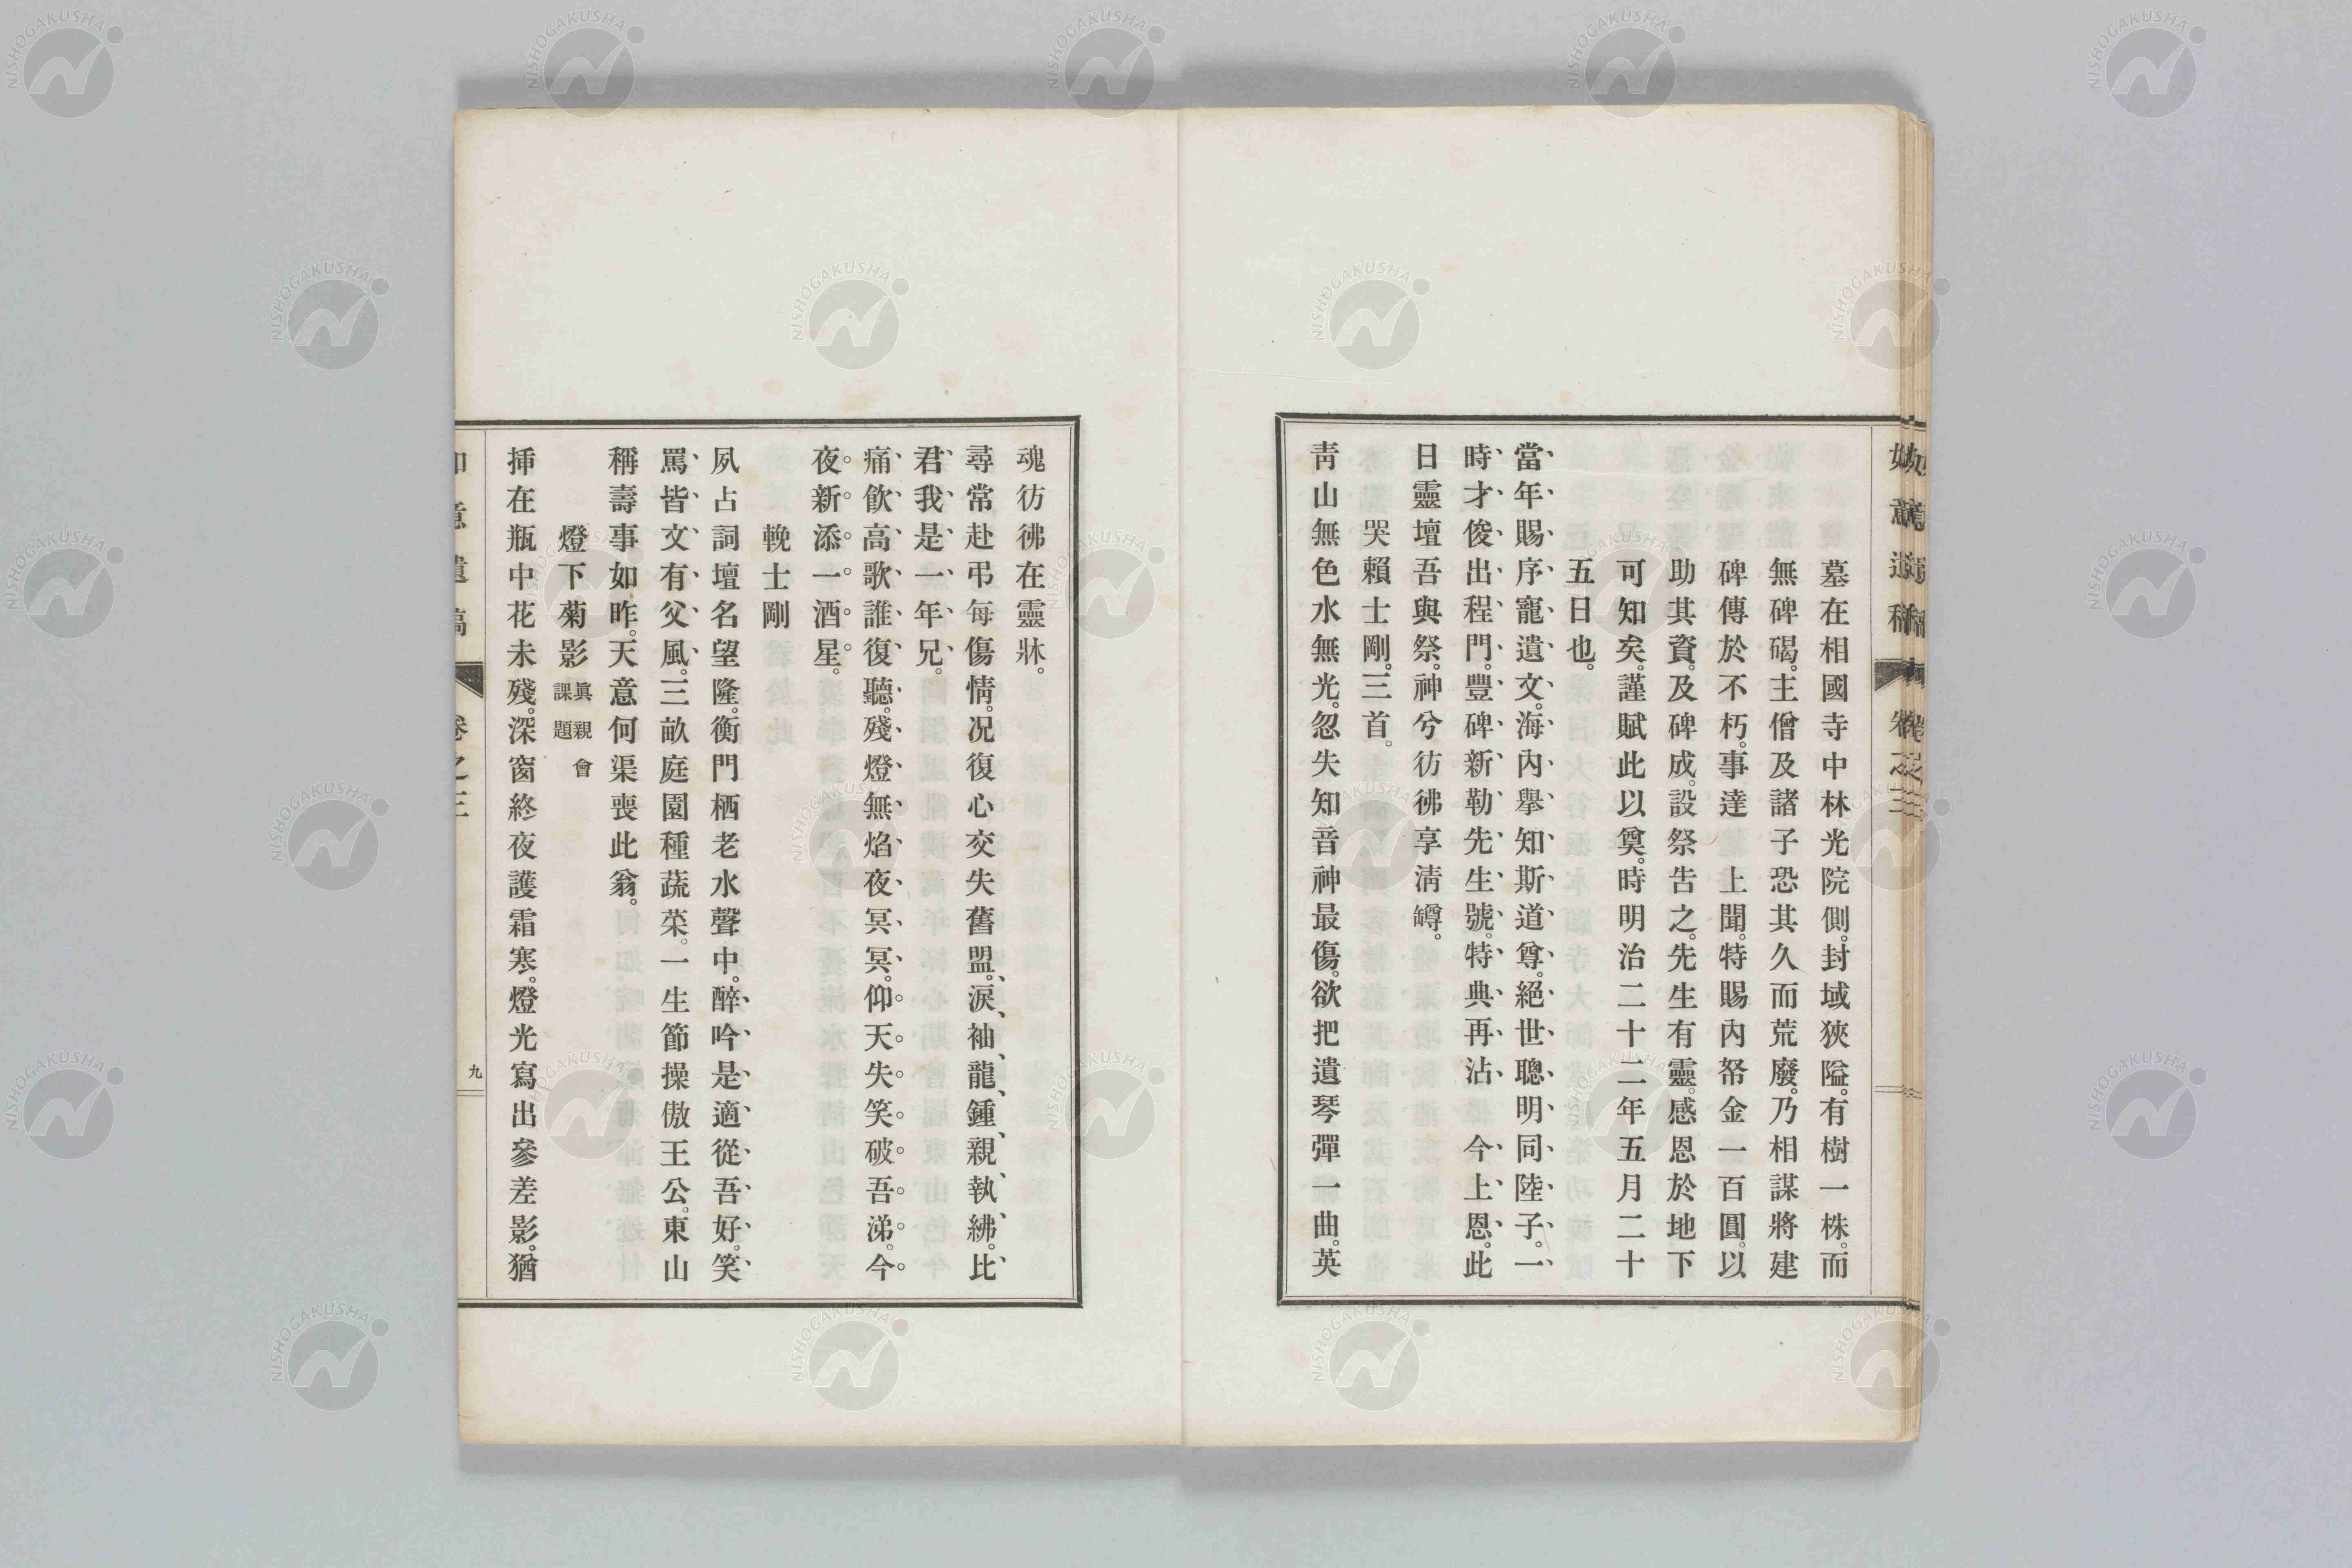 墓在相國寺中林光院側。封域狹隘。有樹一株。而
無碑碣。主僧及諸子恐其久而荒廢。乃相謀將建
碑傳於不朽。事達　上聞。特賜內帑金一百圓。以
助其資。及碑成。設祭告之。先生有靈。感恩於地下
可知矣。謹賦此以奠。時明治二十二年五月二十
五日也。
當年賜序寵遺文。海內擧知斯道尊。絕世聰明同陸子。一
時才俊出程門。豐碑新勒先生號。特典再沾　今上恩。此
日靈壇吾與祭。神兮彷彿享淸罇。
哭賴士剛。三首。
靑山無色水無光。忽失知音神最傷。欲把遺琴彈一曲。英
魂彷彿在靈牀。
尋常赴弔每傷情。况復心交失舊盟。淚袖龍鍾親執紼。比
君我是一年兄。
痛飮高歌誰復聽。殘燈無焰夜冥冥。仰天失笑破吾涕。今
夜新添一酒星。
輓士剛
夙占詞壇名望隆。衡門栖老水聲中。醉吟是適從吾好。笑
罵皆文有父風。三畝庭園種蔬菜。一生節操傲王公。東山
稱壽事如昨。天意何渠喪此翁。
燈下菊影 眞親會課題
揷在瓶中花未殘。深窗終夜護霜寒。燈光寫出參差影。猶
卷之三
九
NISHOGAKUSHA